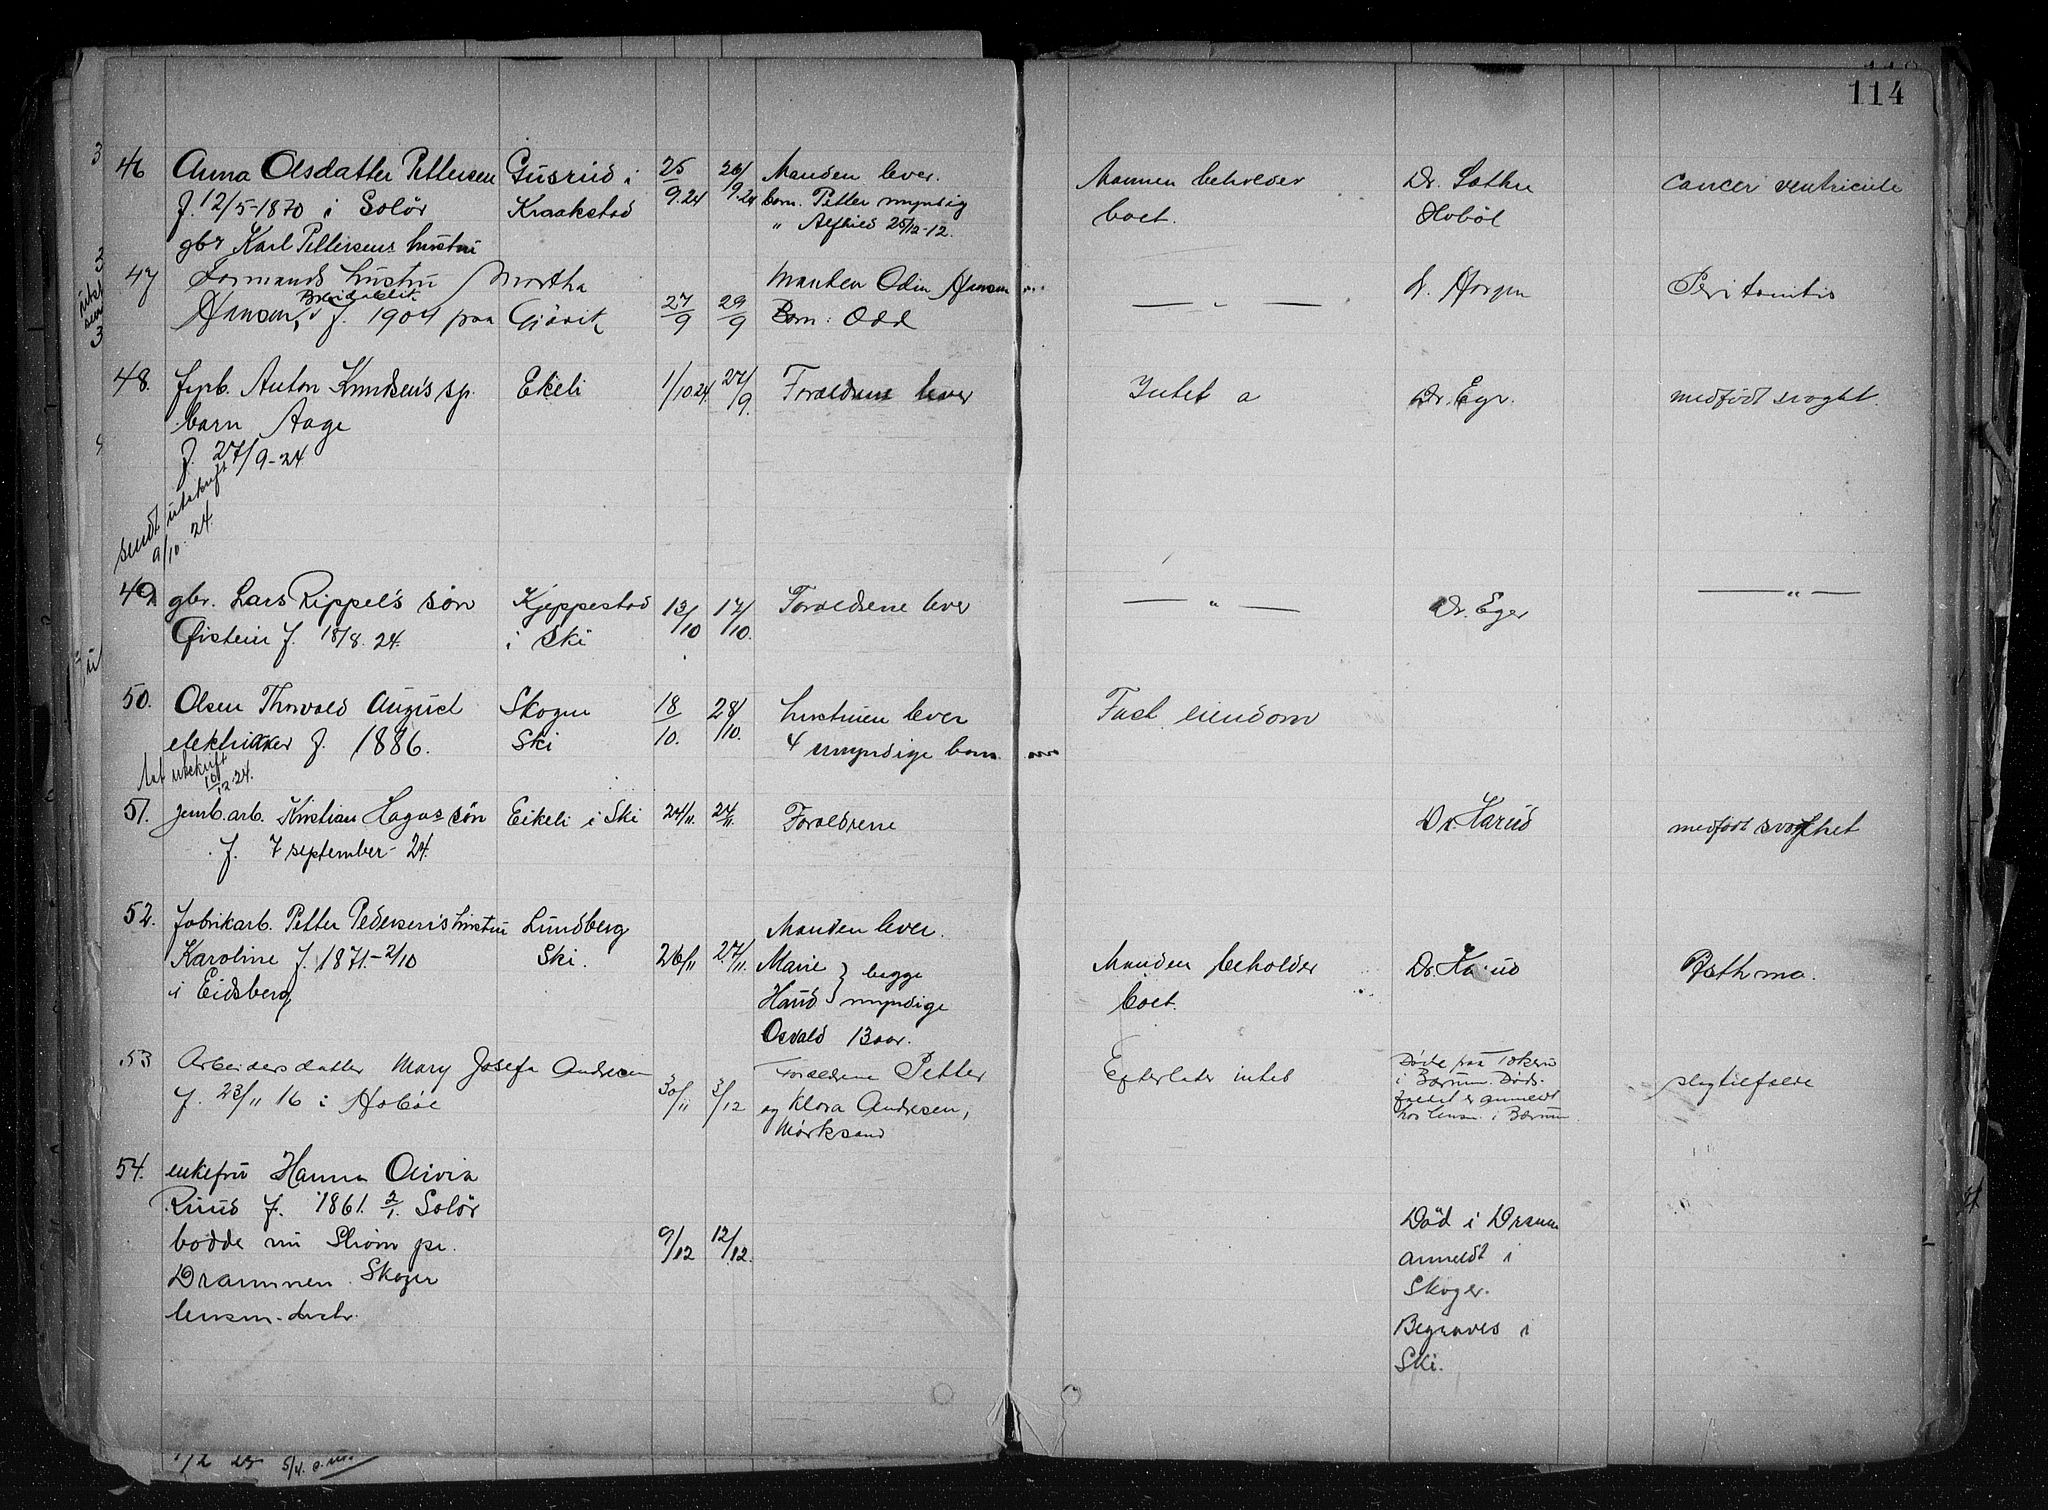 114
46 Anna Olsdatter Pettersen
f. 12/5-1870 i Solör
gbr Karl Pettersens hustru
Gusrud i
Kraakstad
25/9.24
26/9.24
Manden lever.
barn. Petter myndig
" Alfhild 25/12-12.
Mannen beholder
boet.
Dr.
Hobøl
cancer ventricule
47 Formands hustru Martha
Hansen, f. 1904 paa Gjövik
27/9
29/9
Manden Odin Hansen
Barn: Odd
— " —
Dr. Horgen
Peritonitis
48. jernb. Anton Knudsen's sp.
barn Aage
f. 27/9-24
sendt utskrift
9/10.24.
Ekeli
1/10 24
27/9.
Foreldrene lever
Intet a
Dr. Eger
medfödt svaghet.
49 gbr. Lars Rippel's søn
Øistein f. 18/8.24.
Kjeppestad
i Ski
13/10
17/10.
Foreldrene lever
— " —
Dr. Eger
— " —
50. Olsen Thorvald August
elektriker f. 1886.
utskrift
10/12.24.
Skogen
Ski
18/10.
28/10.
hustruen lever
4 umyndige barn
Fast eiendom
51. jernb.arb. Kristian Hagas søn
f. 7 september-24.
Eikeli i Ski
24/11.
27/11.
Foreldrene
Dr. Harud
medfødt svaghet
52. fabrikarb. Petter Pedersen's hustru
Karoline f. 1871.-2/10
i Eidsberg
Lundberg
Ski.
26/11
27/11.
Manden lever.
Marie } begge
Haud } myndige
Osvald 13 aar.
Manden beholder
boet.
Dr. Harud
Asthma.
53 Arbeidersdatter Mary Josefa Andresen
f. 23/11 16 i Hobøl
30/11
3/12
Foreldrene Petter
og Klara Andresen,
Mørksand
Efterlater intet
Døde paa
i Bærum. Døds-
faldet er anmeldt
hos lensm. i Bærum.
slagtilfælde
54. enkefru Hanna Olivia
Ruud f. 1861. 2/1. Solör
bodde nu Strøm pr.
Drammen. Skoger
lensm. distr.
9/12
12/12.
Død i Drammen
anmeldt i
Skoger.
Begraves i
Ski.